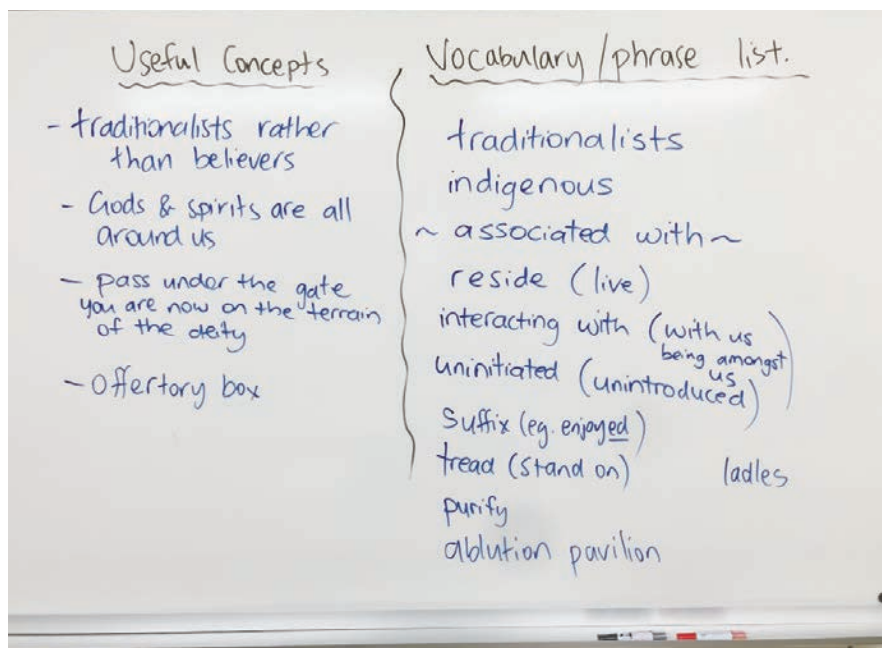 Useful Concepts
- traditionalists rather
than believers
- Gods & spirits are all
around us
- pass under the gate
you are now on the terrain
of the deity
- Offertory box
Vocabulary/phrase list.
traditionalists
indigenous
~ associated with ~
reside (live)
interacting with (with us
being amongst
us)
uninitiated (unintroduced)
Suffix (eg. enjoyed)
tread (stand on)
ladles
purify
ablution pavilion